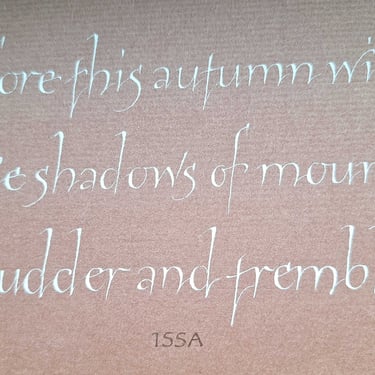 fore this autumn wi
e shadows of moun
udder and trembl
ISSA